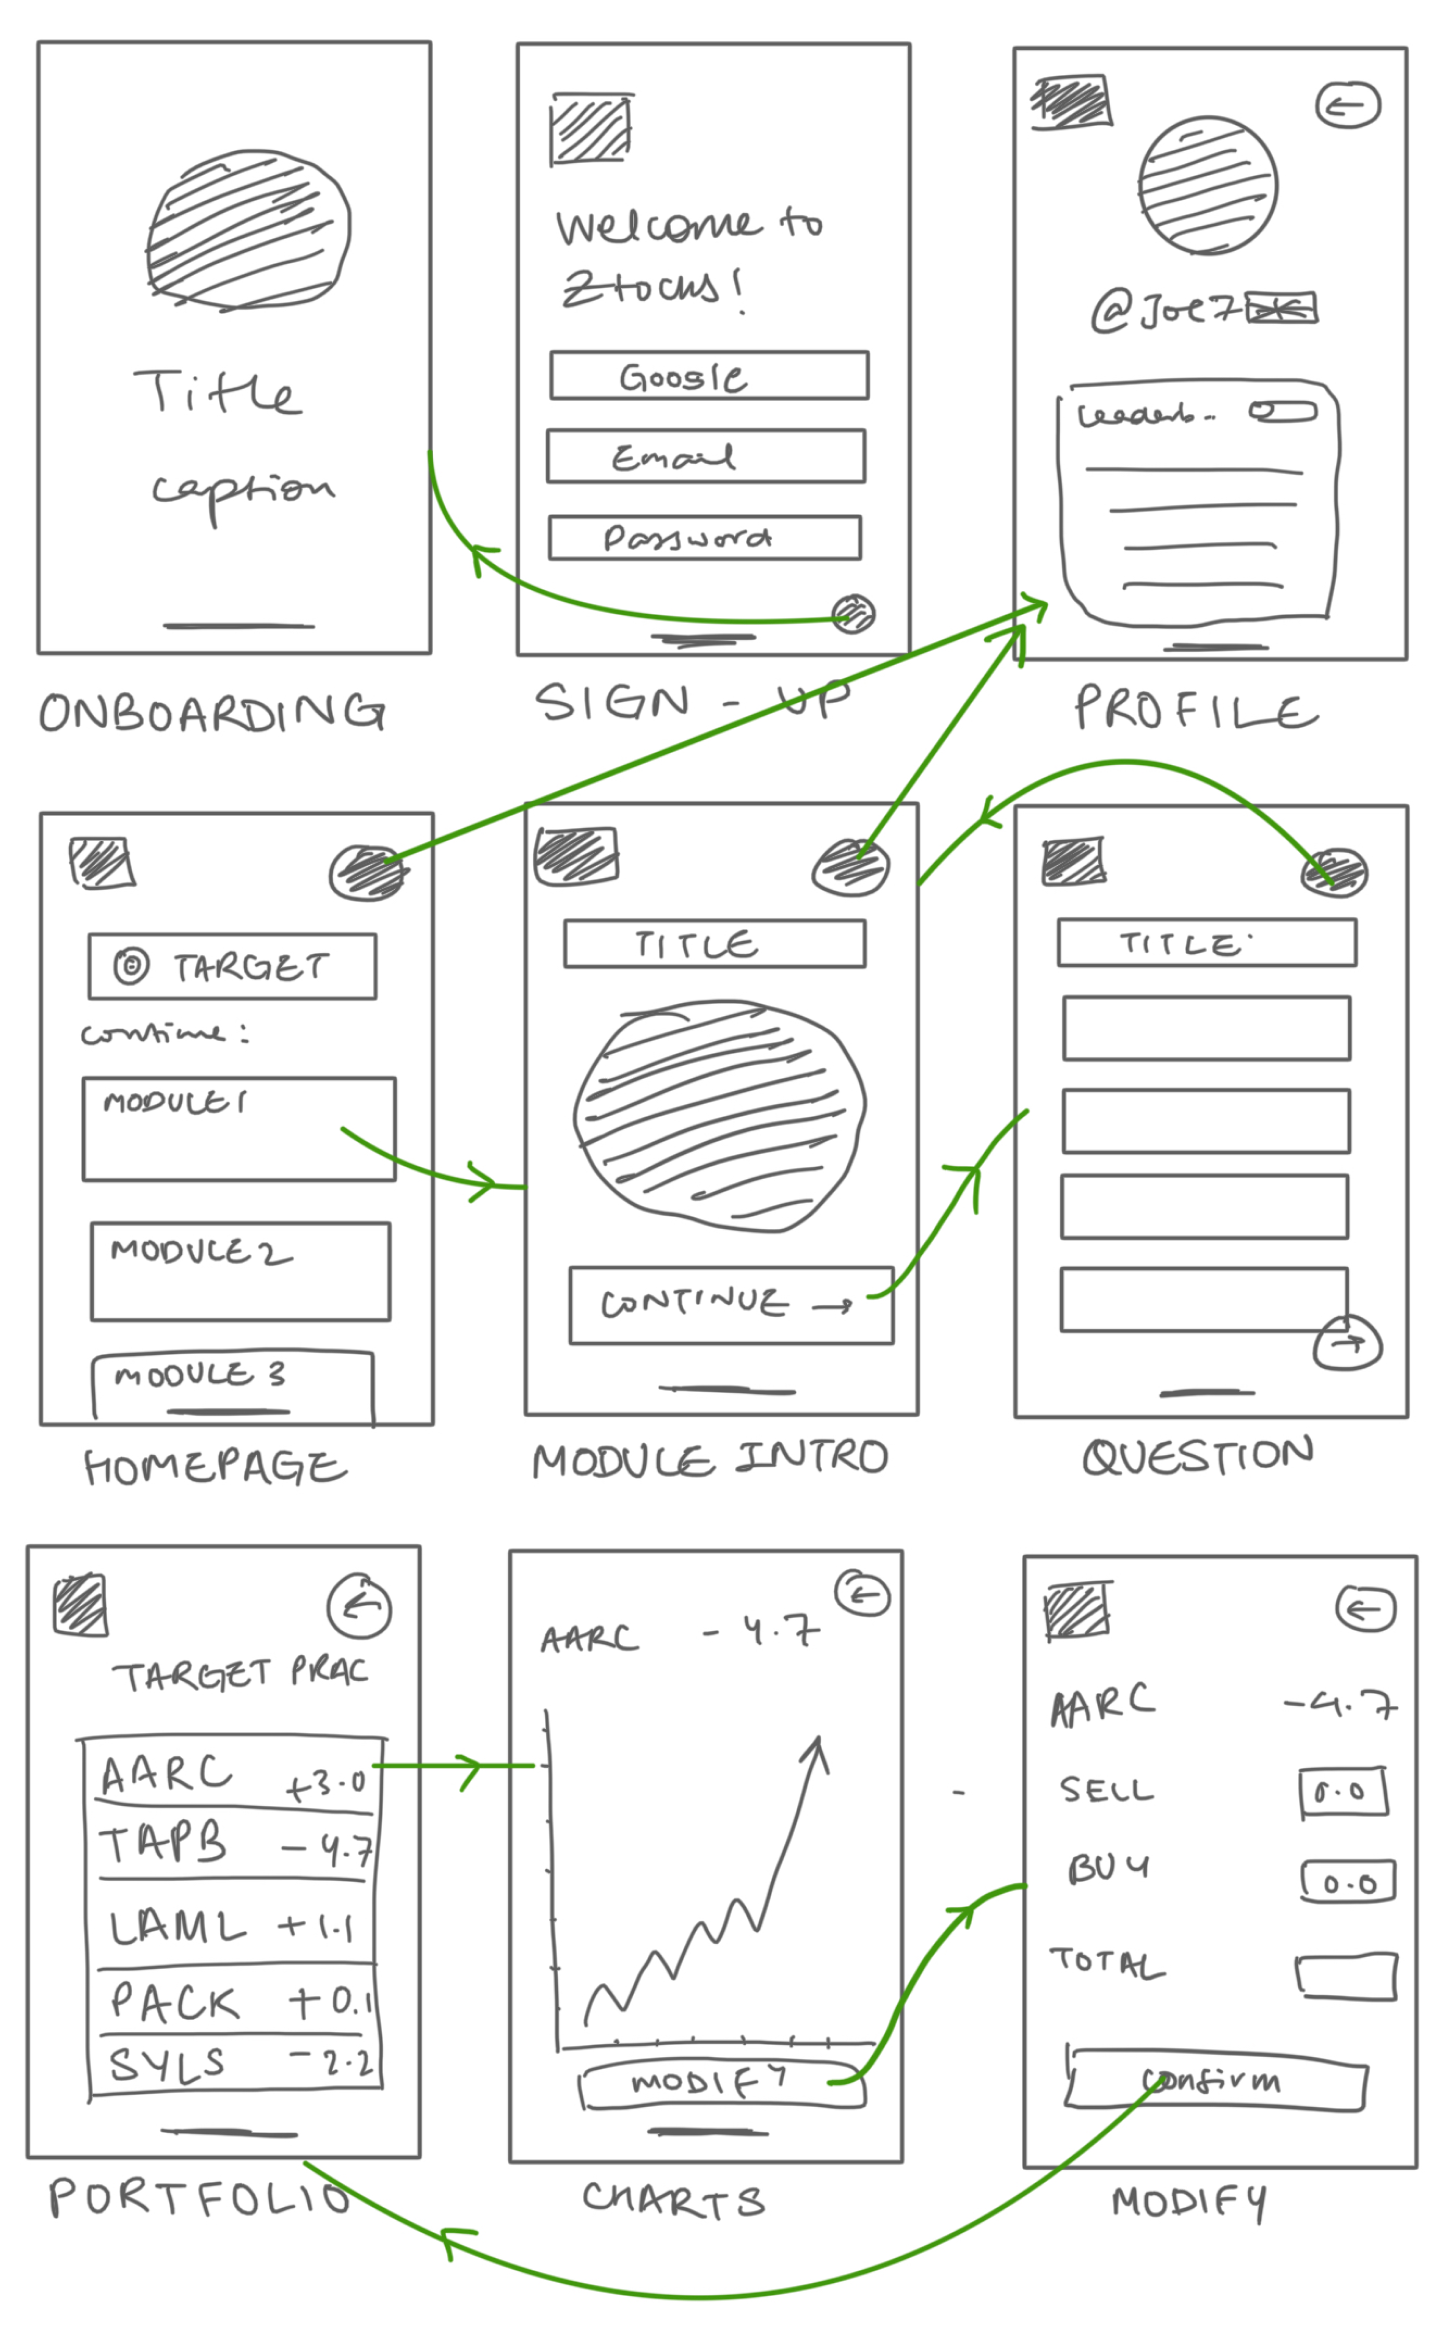 Title
caption
ONBOARDING
Welcome to
Ztocks!
Google
Email
Password
SIGN - UP
@Joe7
Leaderb...
PROFILE
TARGET
continue:
MODULE 1
MODULE 2
MODULE 3
HOMEPAGE
TITLE
CONTINUE →
MODULE INTRO
TITLE:
→
QUESTION
←
TARGET PRAC
AARC +3.0
TAPB -4.7
LAML +1.1
PACK +0.1
SYLS -2.2
PORTFOLIO
←
AARC -4.7
MODIFY
CHARTS
←
AARC -4.7
SELL 0.0
BUY 0.0
TOTAL
Confirm
MODIFY